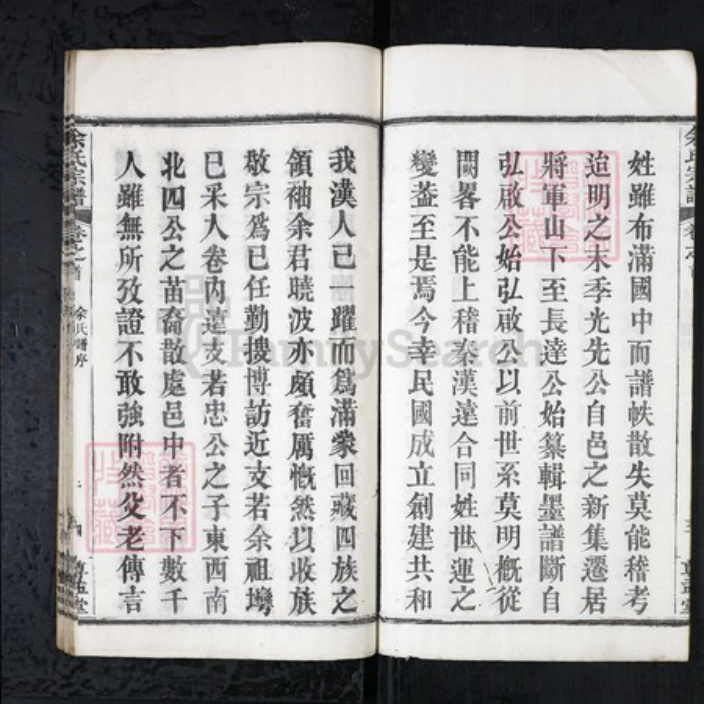 姓雖布滿國中而譜帙散失莫能稽考
迨明之末季光先公自邑之新集遷居
將軍山下至長達公始纂輯墨譜斷自
弘啟公始弘啟公以前世系莫明概從
闕畧不能上稽秦漢遠合同姓世運之
變葢至是焉今幸民國成立創建共和
我漢人已一躍而爲滿蒙回藏四族之
領袖余君曉波亦頗奮厲慨然以收族
敬宗爲已任勤搜博訪近支若余祖塆
已采人卷內遠支若忠公之子東西南
北四公之苗裔散處邑中者不下數千
人雖無所攷證不敢強附然父老傳言
余氏宗譜
卷之首
余氏譜序
余氏宗譜
FamilySearch